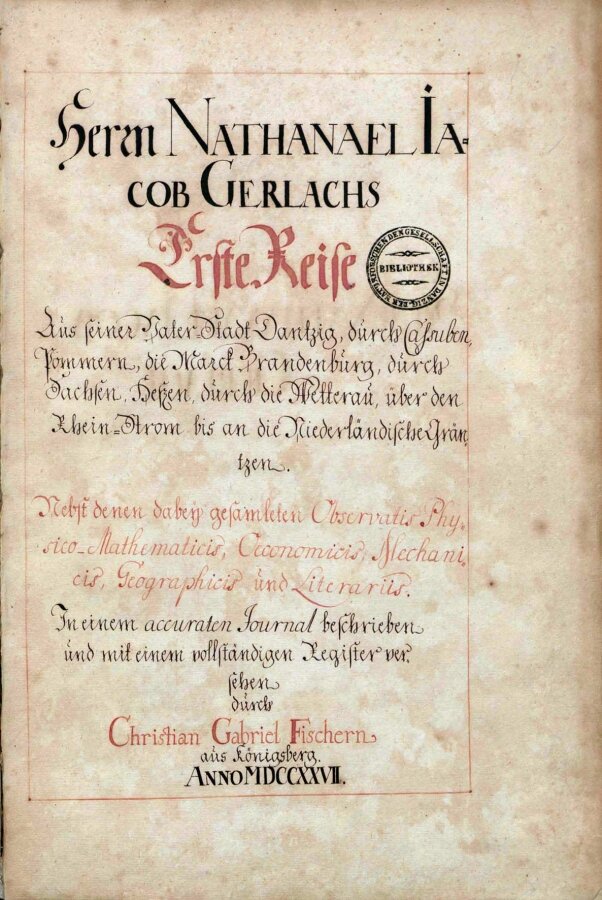 Herrn NATHANAEL IA-
COB GERLACHS
Erste Reise
DER NATURFORSCHENDEN GESELLSCHAFT IN DANZIG
BIBLIOTHEK
Aus seiner Vater-Stadt Dantzig, durch Cassuben,
Pommern, die Marck Brandenburg, durch
Sachsen, Heszen, durch die Wetterau, über den
Rhein-Strom bis an die Niederländische Grän
tzen.
Nebst denen dabey gesamleten Observatis Phy-
sico-Mathematicis, Oeconomicis, Mechani-
cis, Geographicis und Literariis.
In einem accuraten Journal beschrieben
und mit einem vollständigen Register ver-
sehen
durch
Christian Gabriel Fischern
aus Königsberg.
ANNO MDCCXXVII.